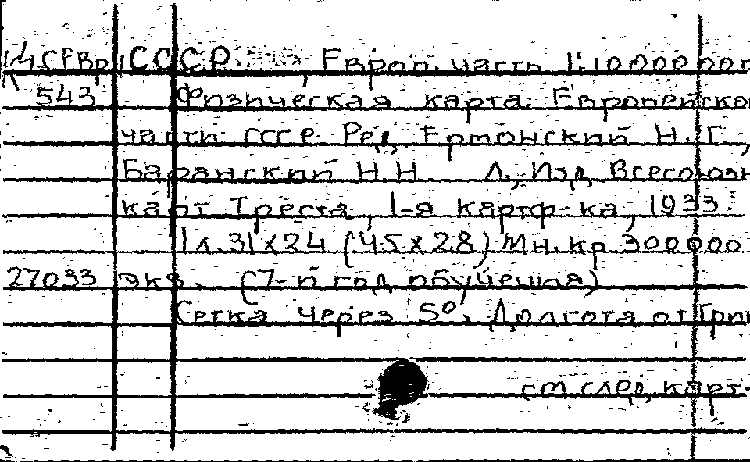 СССР, Европ. часть 1:10000000
543 Физическая карта Европейско
части СССР. Ред. Н. Г.,
Баранский Н. Н. Л., Изд. Всесоюзн
карт Треста, 1-я картф-ка, 1933.
1 л. 31х24 (45х28) Мн. кр. 300000
27033 экз. (7-й год обучения)
Сетка через 5°. Долгота от Грин
см. след. карт.